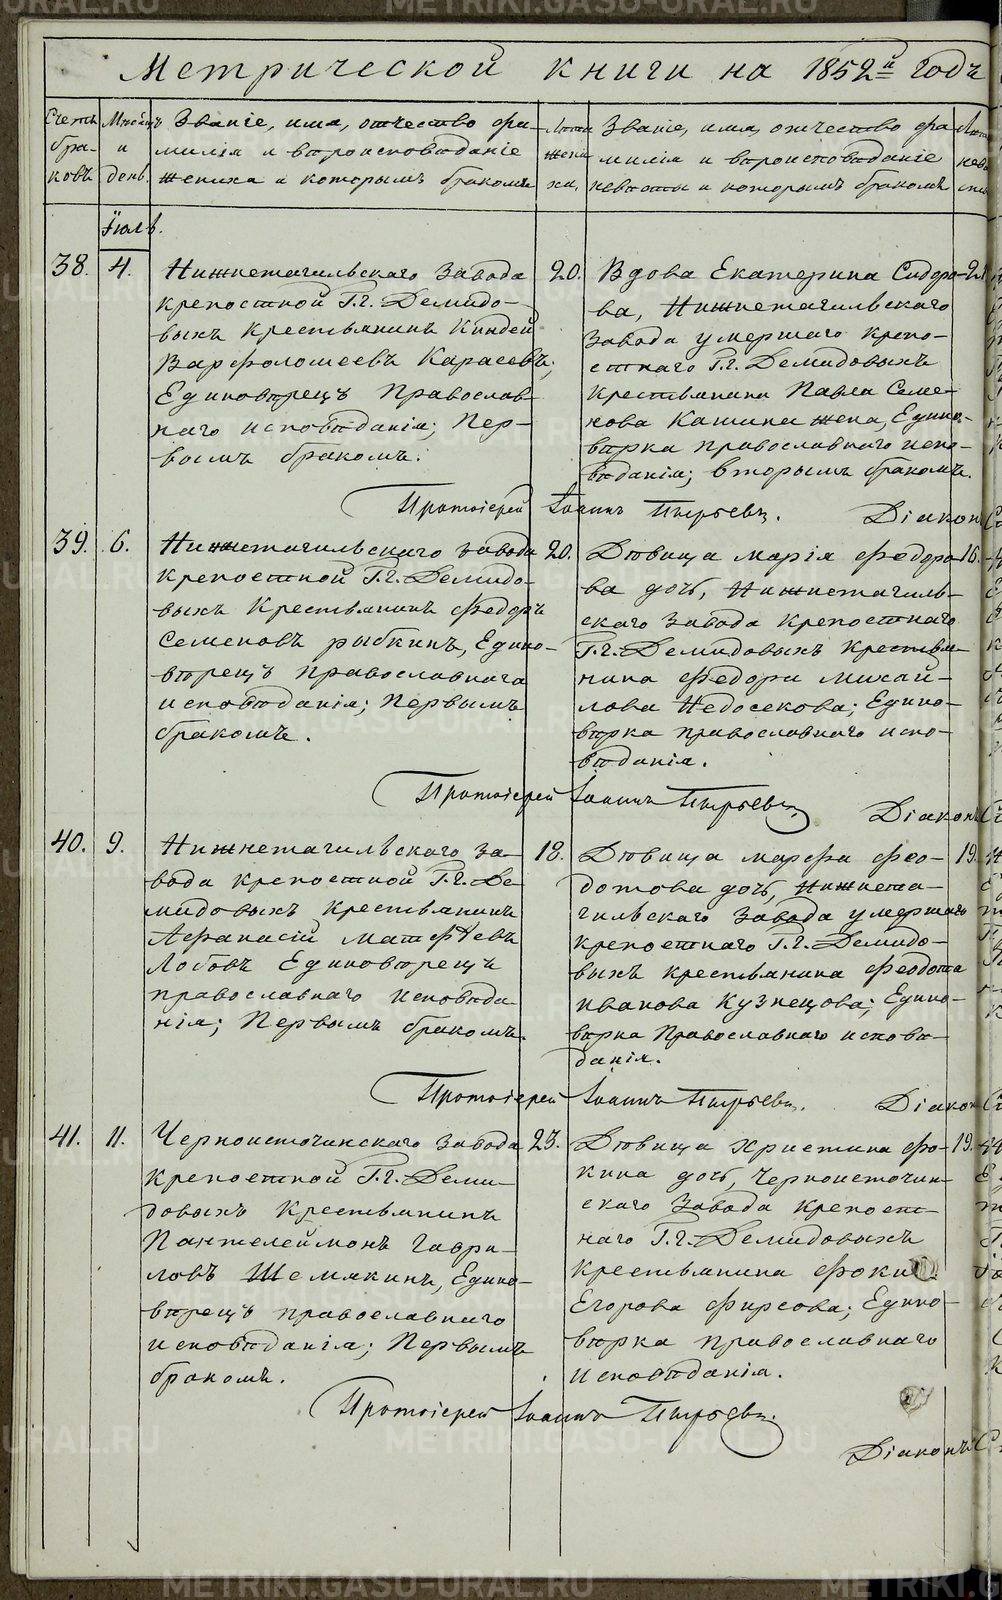 Метрической книги на 1852й годъ
Счетъ бра-ковъ
Мѣсяцъ и день.
Званіе, имя, отчество фа-
милія и вѣроисповѣданіе
жениха и которымъ бракомъ
Лета жени ха,
Званіе, имя, отчество фа
милія и вѣроисповѣданіе
невѣсты и которымъ бракомъ
Іюль.
38. 4.
Нижнетагильскаго Завода
крепостной Г.г. Демидо-
выхъ Крестьянинъ Киндей
Варфоломеевъ Карасевъ;
Единовѣрецъ Православ
наго исповѣданія; Пер-
вымъ бракомъ.
20.
Вдова Екатерина Сидоро-
ва, Нижнетагильскаго
Завода умершаго крепо-
стнаго Г.г. Демидовыхъ
крестьянина Павла Семе-
нова Кашина жена, Едино-
вѣрка православнаго испо-
вѣданія; вторымъ бракомъ.
Протоіерей Іоаннъ Пырьевъ.
Діаконъ
39. 6.
Нижнетагильскаго завода
крепостной Г.г. Демидо-
выхъ Крестьянинъ Федоръ
Семеновъ рыбкинъ, Едино-
вѣрецъ православнаго
исповѣданія; Первымъ
бракомъ.
20.
Дѣвица марія Федоро-
ва дочь, Нижнетагиль-
скаго Завода Крепостнаго
Г.г. Демидовыхъ Крестья-
нина Федора михай-
лова Недосекова; Едино-
вѣрка православнаго испо-
вѣданія.
16.
Протоіерей Іоаннъ Пырьевъ,
Діаконъ
40. 9.
Нижнетагильскаго за-
вода крепостной Г.г. Де-
мидовыхъ Крестьянинъ
Афанасій матфѣевъ
Лобовъ Единовѣрецъ
православнаго исповѣда
нія; Первымъ бракомъ.
18.
Дѣвица марфа Фео-
дотова дочь, Нижнета-
гильскаго Завода умершаго
крепостнаго Г.г. Демидо-
выхъ крестьянина Феодота
иванова Кузнецова; Едино-
вѣрка Православнаго испове-
данія.
19.
Протоіерей Іоаннъ Пырьевъ.
Діаконъ
41. 11.
Черноисточинскаго Завода
крепостной Г.г. Деми-
довыхъ Крестьянинъ
Пантелеймонъ Гаври-
ловъ Шемякинъ, Едино-
вѣрецъ православнаго
исповѣданія; Первымъ
бракомъ.
23.
Дѣвица Христина Фо-
кина дочь, Черноисточин-
скаго Завода Крепост-
наго Г.г. Демидовыхъ
Крестьянина Фоки
Егорова Фирсова; Едино-
вѣрка православнаго
исповѣданія.
19.
Протоіерей Іоаннъ Пырьевъ.
Діаконъ
METRIKI.GASO-URAL.RU